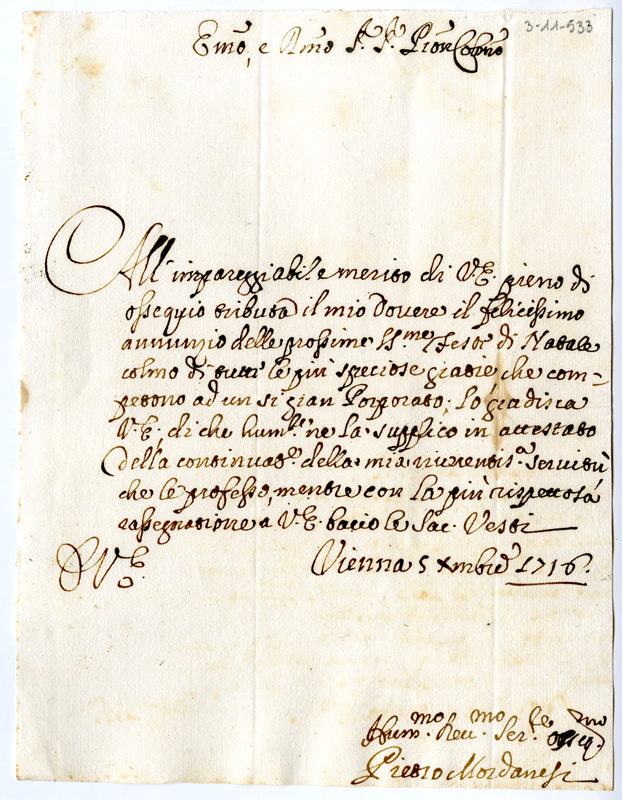 3-11-533
Emo, e Rmo Sr. Sr. Pron Colmo
All'impareggiabile merito di V.E. pieno di
ossequio tributa il mio Dovere il felicissimo
annunzio delle prossime SSme Feste di Natale
colmo di tutte le più speciose grazie che com-
petono ad un si gran Porporato; Lo gradisca
V.E., di che humle. ne la supplico in attestato
della continuate. della mia riverentis.a servitù
che le professo, mentre con la più rispettosa
rassegnatione a V.E. bacio le Sac. Vesti
D V.E.
Vienna 5 Xmbre 1716.
Hum.mo Rev.mo Ser.re osseq.mo
Pietro Mordanesi